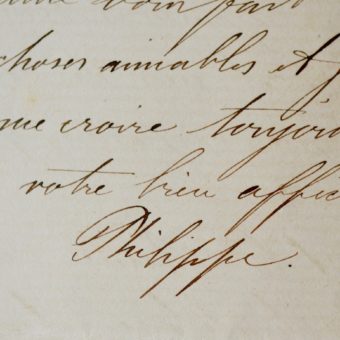 choses aimables et
me croire toujou
votre bien affec
Philippe.